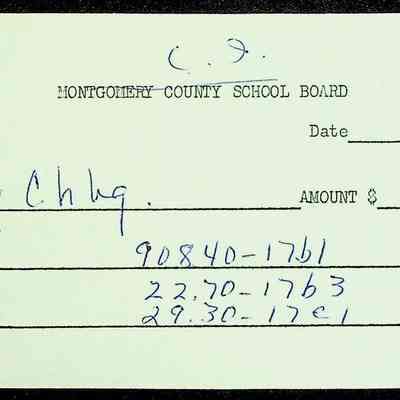 C. F.
MONTGOMERY COUNTY SCHOOL BOARD
Date
Chbg. AMOUNT $
90840-17b1
22.70-17b3
29.30-17c1